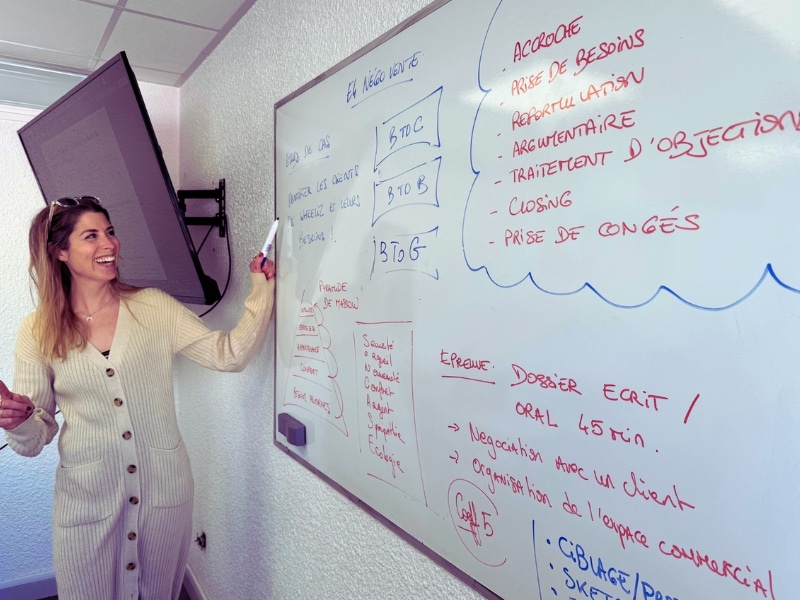 E4 NÉGO VENTE
ÉTUDE DE CAS
LES CLIENTS
DE WHEELIZ ET LEURS
BESOINS !
B TO C
B TO B
B TO G
PYRAMIDE
DE MASLOW
Sécurité
Orgueil
Nouveauté
Confort
Argent
Sympathie
Ecologie
- ACCROCHE
- PRISE DE BESOINS
- REFORMULATION
- ARGUMENTAIRE
- TRAITEMENT D'OBJECTION
- CLOSING
- PRISE DE CONGÉS
EPREUVE: DOSSIER ECRIT /
ORAL 45 min.
→ Negociation avec un client
→ organisation de l'espace commercial
Coeff 5
• CIBLAGE/
• SKET